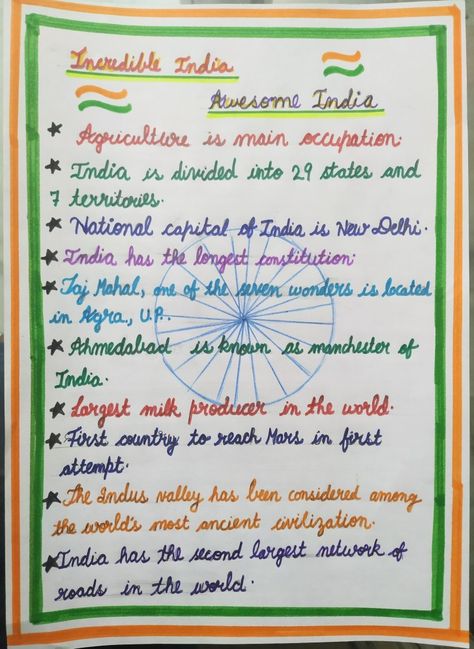 Incredible India
Awesome India
★ Agriculture is main occupation.
★ India is divided into 29 states and
7 territories.
★ National capital of India is New Delhi.
★ India has the longest constitution.
★ Taj Mahal, one of the seven wonders is located
in Agra., U.P..
★ Ahmedabad is known as manchester of
India.
★ Largest milk producer in the world.
★ First country to reach Mars in first
attempt.
★ The Indus valley has been considered among
the world's most ancient civilization.
★ India has the second largest network of
roads in the world.